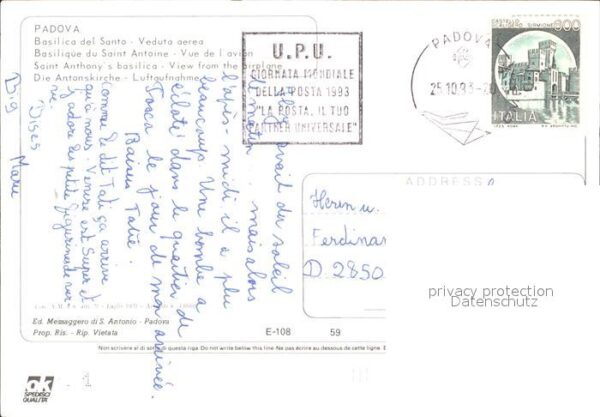 PADOVA
Basilica del Santo - Veduta aerea
Basilique du Saint Antoine - Vue de l'avion
Saint Anthony's basilica - View from the airplane
Die Antonskirche - Luftaufnahme
U.P.U.
GIORNATA MONDIALE
DELLA POSTA 1993
"LA POSTA, IL TUO
PARTNER UNIVERSALE"
PADOVA
25.10.93
CASTELLO
SIRMIONE
800
ITALIA
avait du soleil
matin mais alors
l'après-midi il a plu
beaucoup. Une bombe a
éclaté dans le quartier de
Tosca le jour de mon arrivée.
Baisers Tatie.
Comme le dit Tati ça arrive
qu'à nous. Venise est super et
j'adore les petites figurines de ver
re.
Big Bises
Marie
ADDRESS
Herrn u.
Ferdinan
D. 2850
privacy protection
Datenschutz
Ed. Messaggero di S. Antonio - Padova
Prop. Ris. - Rip. Vietata
E-108 59
Non scrivere al di sotto di questa riga. Do not write below this line - Ne pas écrire au dessous de cette ligne
ok
SPEDISCI
QUALITÀ